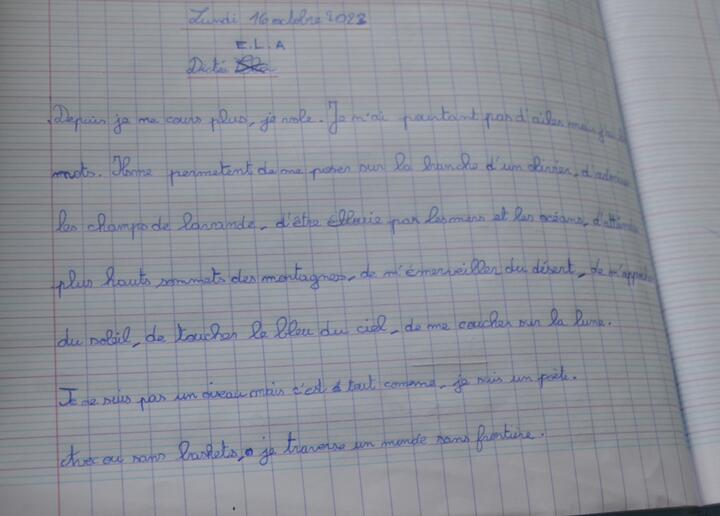 Lundi 16 octobre 2023
E.L.A
Dictée
Depuis je me cours plus, je vole. Je n'ai pourtant pas d'ailes mais
mots. Ils me permetent de me poser sur la branche d'un olivier, d'admirer
les champs de lavande, d'être éblouie par les mers et les océans, d'atteindre
plus hauts sommets des montagnes, de m'émerveiller du désert, de m'approcher
du soleil, de toucher le bleu du ciel, de me coucher sur la lune.
Je ne suis pas un oiseau mais c'est tout comme, je suis un poète.
Avec ou sans baskets, je traverse un monde sans frontière.